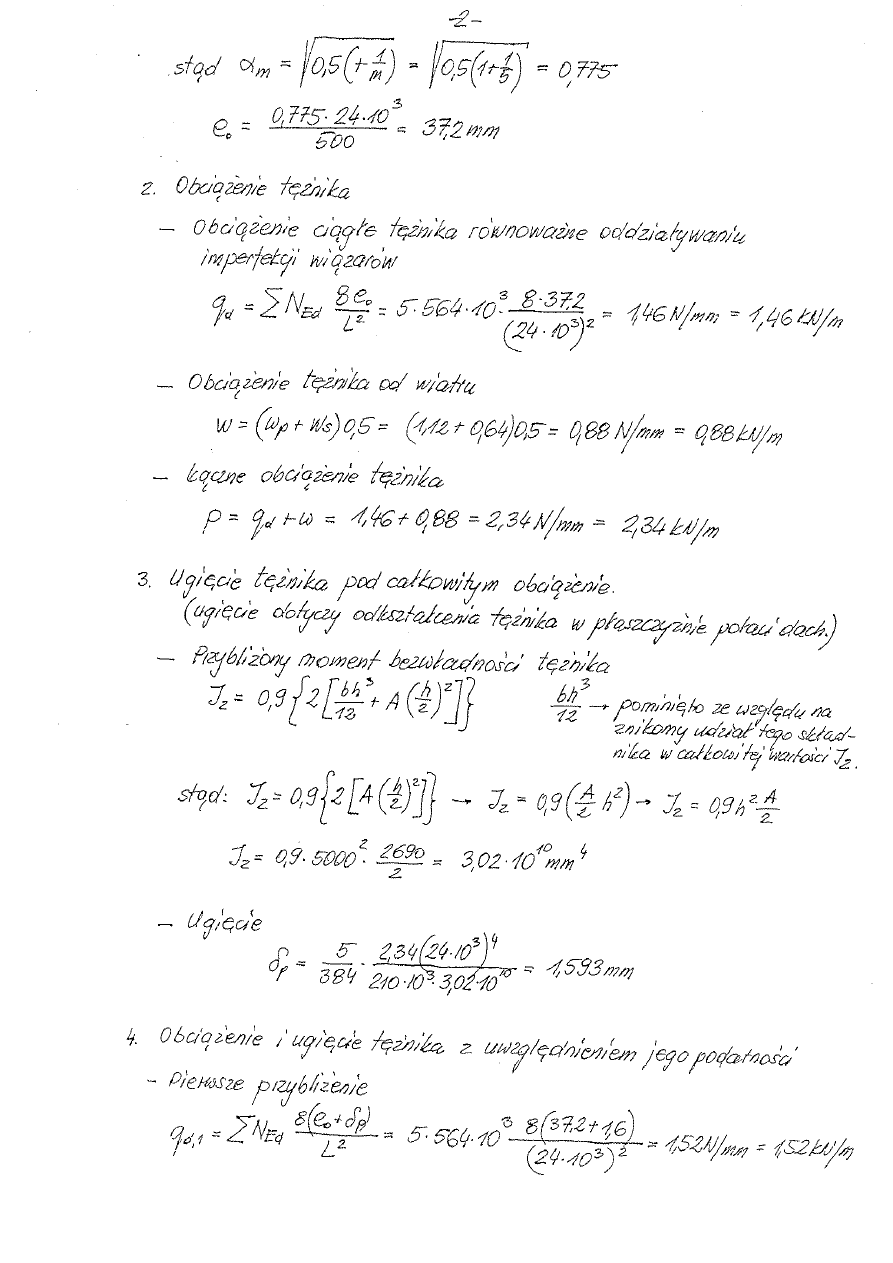 -2-
stąd αm = √0,5(+1/m) = √0,5(1+1/5) = 0,775
e₀ = 0,775·24·10³/500 = 37,2 mm
2. Obciążenie tężnika
— Obciążenie ciągłe tężnika równoważne oddziaływaniu
imperfekcji wiązarów
qd = ΣNEd 8e₀/L² = 5·564·10³· 8·37,2/(24·10³)² = 1,46 N/mm = 1,46 kN/m
— Obciążenie tężnika od wiatru
w = (wp + ws)0,5 = (1,12 + 0,64)0,5 = 0,88 N/mm = 0,88 kN/m
— Łączne obciążenie tężnika
p = qd + w = 1,46 + 0,88 = 2,34 N/mm = 2,34 kN/m
3. Ugięcie tężnika pod całkowitym obciążenie.
(ugięcie dotyczy odkształcenia tężnika w płaszczyźnie połaci dach.)
— Przybliżony moment bezwładności tężnika
Jz = 0,9{2[bh³/12 + A(h/2)²]} bh³/12 → pominięto ze względu na
znikomy udział tego skład-
nika w całkowitej wartości Jz.
stąd: Jz = 0,9{2[A(h/2)²]} → Jz = 0,9(A/2 h²) → Jz = 0,9h² A/2
Jz = 0,9·5000²· 2690/2 = 3,02·10¹⁰ mm⁴
— Ugięcie
δp = 5/384 · 2,34(24·10³)⁴/210·10³·3,02·10¹⁰ = 1,593 mm
4. Obciążenie i ugięcie tężnika z uwzględnieniem jego podatności
- Pierwsze przybliżenie
qd,1 = ΣNEd 8(e₀+δp)/L² = 5·564·10³ 8(37,2+1,6)/(24·10³)² = 1,52 N/mm = 1,52 kN/m